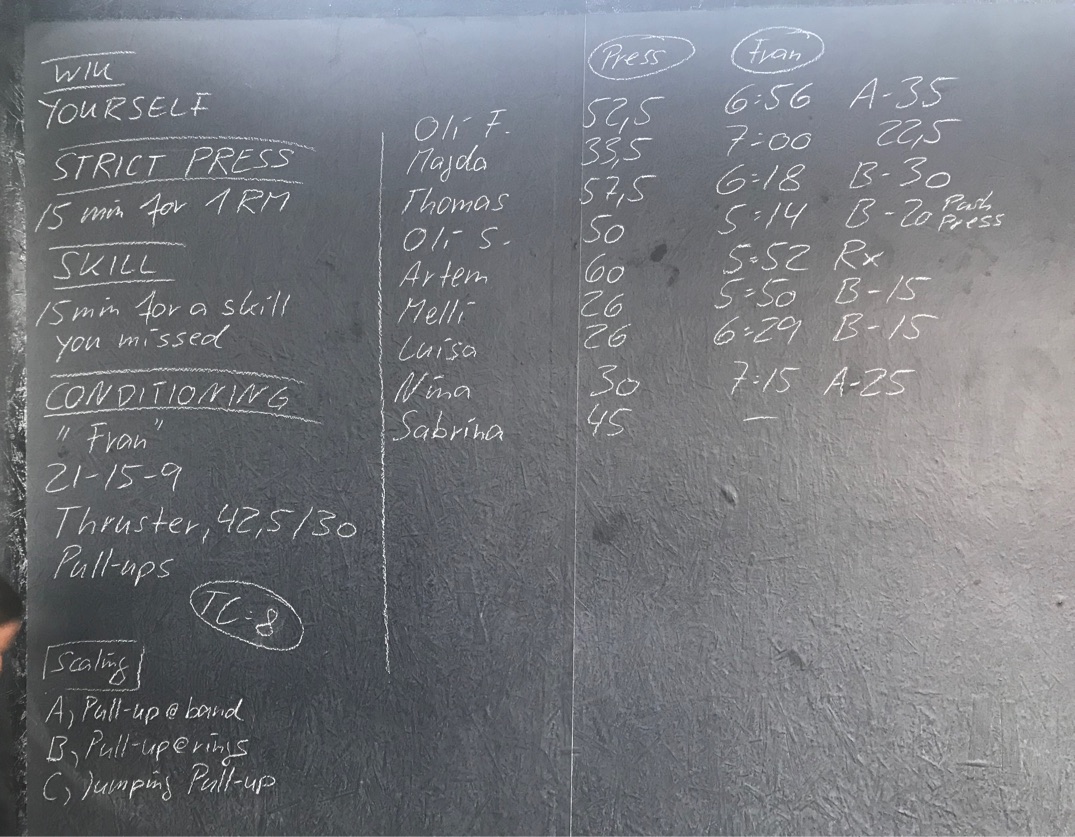 WU
YOURSELF
STRICT PRESS
15 min for 1 RM
SKILL
15 min for a skill
you missed
CONDITIONING
"Fran"
21-15-9
Thruster, 42,5/30
Pull-ups
TC=8
Scaling
A, Pull-up @ band
B, Pull-up @ rings
C, Jumping Pull-up
Press Fran
Oli F. 52,5 6:56 A-35
Majda 33,5 7:00 22,5
Thomas 57,5 6:18 B-30
Oli S. 50 5:14 B-20 Push Press
Artem 60 5:52 Rx
Melli 26 5:50 B-15
Luisa 26 6:29 B-15
Nina 30 7:15 A-25
Sabrina 45 —